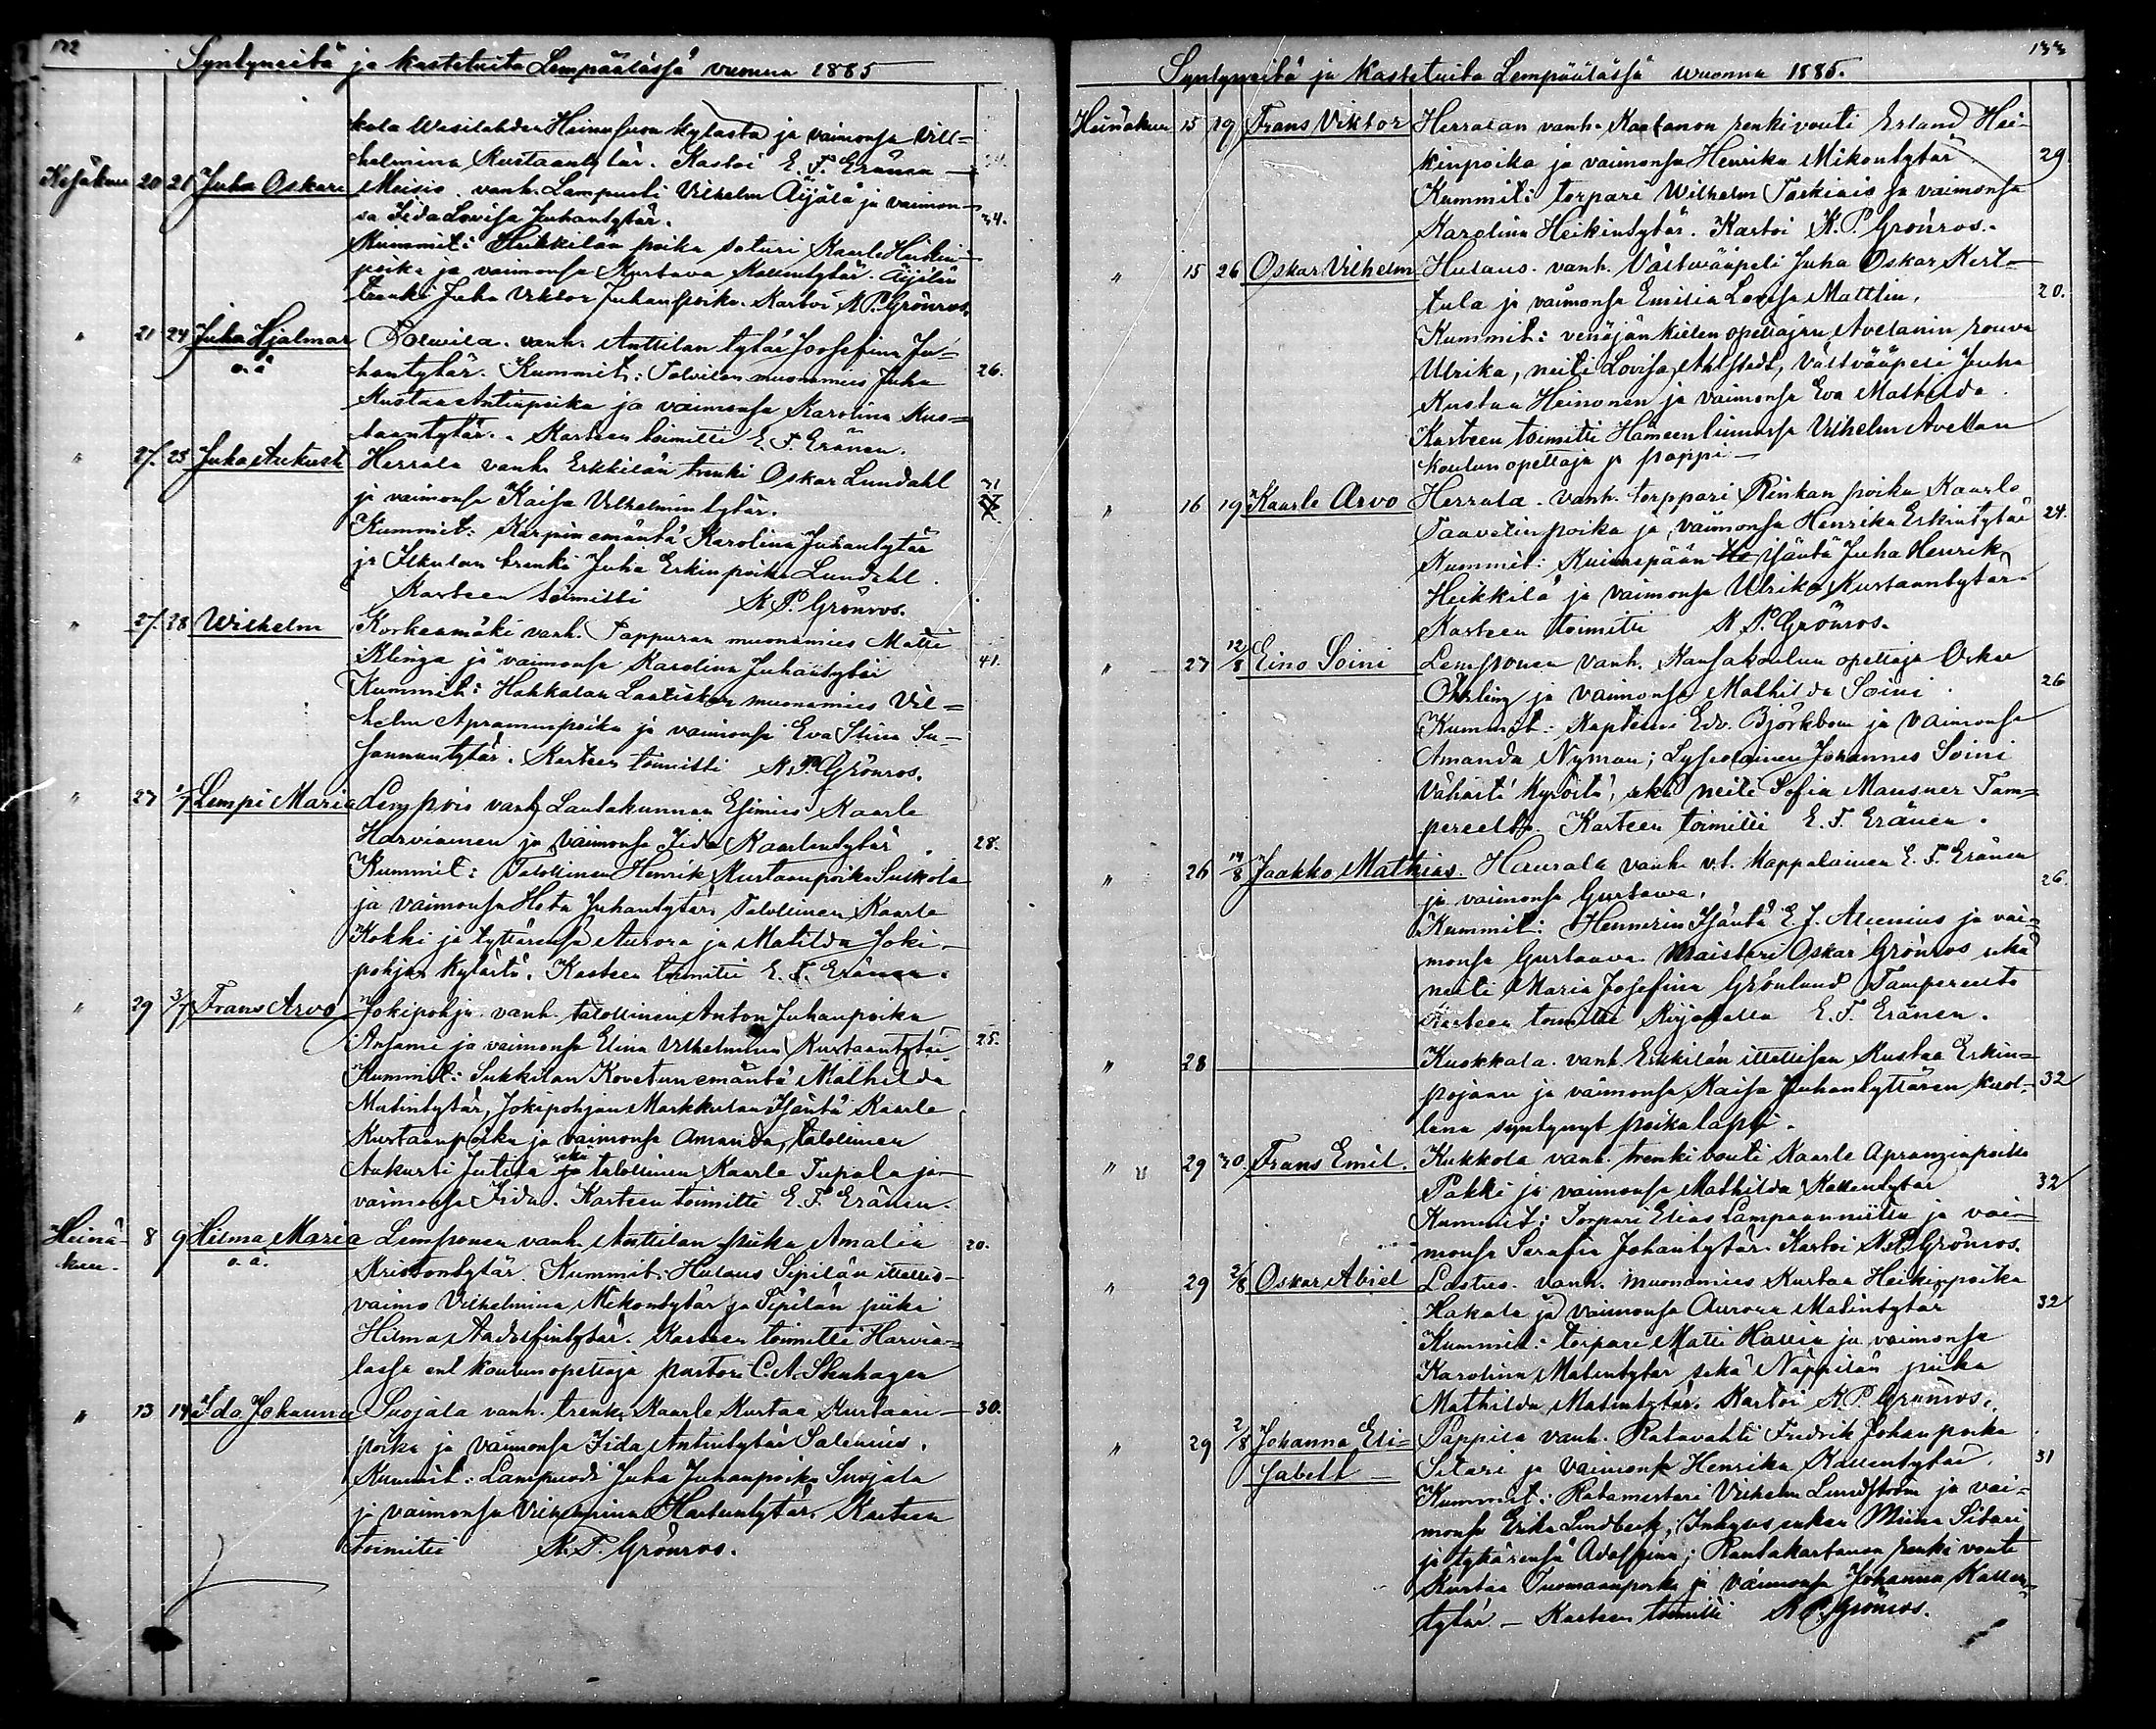 132
Syntyneitä ja kastetuita Lempäälässä vuonna 1885
kola Wesilahden Heinusuon kylasta ja vaimonsa Vill=
helmina Kustaantytär. Kastoi E. F. Eränen
Kesäkuu 20 21 Juha Oskari Moisio. vanh. Lampuoti Vilhelm Äijälä ja vaimon-
sa Iida Lovisa Juhantytär. 34.
Kummit: Heikkilän poika soturi Kaarle Heikin
poika ja vaimonsa Kustava Kallentytär. Äijälän
trenki Juha Viktor Juhanpoika. Kastoi K. P. Grönroos.
" 21 24 Juha Hjalmar Tolvila. vanh. Anttilan tytär Josefina Ju-
o. ä hantytär. Kummit: Tolvilan muonamies Juha 26.
Kustaa Antinpoika ja vaimonsa Karolina Kus=
taantytär. Kasteen toimitti E. F. Eränen.
" 27. 28 Juha Aukusti Herrala vanh. Erkkilän trenki Oskar Lundahl
ja vaimonsa Kaisa Vilhelmintytär. 31
Kummit: Karpin emäntä Karolina Juhantytär
ja Ilkulan trenki Juha Erkinpoika Lundahl.
Kasteen toimitti K. P. Grönroos.
" 27. 28 Wilhelm Korkeamäki vanh. Tappuran muonamies Matti
Klinga ja vaimonsa Karolina Juhantytär 41.
Kummit: Hakkalan Laatiskan muonamies Vil=
helm Apraminpoika ja vaimonsa Eva Stina Su-
sannantytär. Kasteen toimitti K. P. Grönroos.
" 27 1/7 Lempi Maria Lempois vanh. Lautakunnan Esimies Kaarle
Harviainen ja vaimonsa Iida Kaarlentytär 28.
Kummit: Talollinen Henrik Kustaanpoika Suikola
ja vaimonsa Heta Juhantytär, Talollinen Kaarle
Kokki ja tyttärensä Aurora ja Matilda Joki-
pohjan kylästä. Kasteen toimitti E. F. Eränen.
" 29 3/7 Frans Arvo Jokipohja vanh. talollinen Anton Juhanpoika
Ansami ja vaimonsa Elina Vilhelmina Kustaantytär 25.
Kummit: Sukkilan Kovetun emäntä Mathilda
Matintytär, Jokipohjan Markkulan Isäntä Kaarle
Kustaanpoika ja vaimonsa Amanda, talollinen
Aukusti Jutila sekä talollinen Kaarle Tupala ja
vaimonsa Iida. Kasteen toimitti E. F. Eränen.
Heinä- 8 9 Hilma Maria Lempoinen vanh. Anttilan piika Amalia 20.
kuu. o. ä. Kristontytär. Kummit: Hulaus Sipilän itellis-
vaimo Vilhelmina Mikontytär ja Sipilän piika
Hilma Aadolfintytär. Kasteen toimitti Harvia-
lassa ent koulunopettaja pastori C. A. Stenhagen
" 13 14 Ida Johanna Suojala vanh. trenki Kaarle Kustaa Kustaan- 30.
poika ja vaimonsa Iida Antintytär Salenius.
Kummit: Lampuodi Juha Juhanpoika Suojala
ja vaimonsa Vilhelmina Kustaantytär, Kasteen
toimitti K. P. Grönroos.
133
Syntyneitä ja Kastetuita Lempäälässä wuonna 1885.
Heinäkuu 15 19 Frans Viktor Herralan vanh. Kartanon renkivouti Erland Hei-
kinpoika ja vaimonsa Henrika Mikontytär 29
Kummit: torpari Wilhelm Taskiais ja vaimonsa
Karolina Heikintytär. Kastoi K. P. Grönroos.
" 15 26 Oskar Vilhelm Hulaus. vanh. Vältvääpeli Juha Oskar Kert-
tula ja vaimonsa Emilia Lovisa Mattlin, 20.
Kummit: venäjän kielen opettajan Avelanin rouva
Ulrika, neiti Lovisa Ahlstedt, Vältvääpeli Juha
Kustaa Heinonen ja vaimonsa Eva Mathilda
Kasteen toimitti Hämeenlinnassa Vilhelm Avellan
koulun opettaja ja pappi —
" 16 19 Kaarle Arvo Herrala. vanh. torppari Rinkan poika Kaarle
Taavetinpoika ja vaimonsa Henrika Erkintytär 24.
Kummit: Kuivaspään isäntä Juha Henrik
Heikkilä ja vaimonsa Ulrika Kustaantytär
Kasteen toimitti K. P. Grönroos.
" 27 12/8 Eino Soini Lempoinen vanh. Kansakoulun opettaja Oskar
Öhrling ja vaimonsa Mathilda Soini 26
Kummit: Kapteeni Edv. Björkbom ja vaimonsa
Amanda Nyman; Lyseolainen Johannes Soini
Vähästä Kyröstä, sekä neiti Sofia Mausner Tam=
pereelta. Kasteen toimitti E. F. Eränen.
" 26 14/8 Jaakko Mathias. Haurala vanh. v.t. Kappalainen E. F. Eränen
ja vaimonsa Gustawa. 26.
Kummit: Hennerin Isäntä E. J. Arenius ja vai-
monsa Gustaava. Maisteri Oskar Grönroos sekä
neiti Maria Josefina Grönlund Tampereelta
Kasteen toimitti E. F. Eränen.
" 28 Kuokkala. vanh. Erkkilän itellisen Kustaa Erkin=
pojan ja vaimonsa Kaisa Juhantyttären kuol- 32
lena syntynyt poikalapsi.
" 29 30. Frans Emil. Kukkola vanh. trenkivouti Kaarle Apraminpoika
Pakki ja vaimonsa Mathilda Kallentytär 32
Kummit: Torpari Elias Lampaanniittu ja vai-
monsa Serafia Johantytär. Kastoi K. P. Grönroos.
" 29 2/8 Oskar Abiel Lastus. vanh. muonamies Kustaa Heikinpoika
Hakala ja vaimonsa Aurora Matintytär 32
Kummit: torpari Matti Hallia ja vaimonsa
Karolina Matintytär sekä Näppilän piika
Mathilda Matintytär. Kastoi K. P. Grönroos.
" 29 2/8 Johanna Eli= Pappila vanh. Ratavahti Fredrik Johanpoika
sabett — Sitari ja vaimonsa Henrika Kallentytär. 31
Kummit: Ratamestari Vilhelm Lundström ja vai-
monsa Erika Lindbeck, Miina Sitari
ja tytärensä Adolfina; Rantakartanon renki vouti
Kustaa Tuomaanpoika ja vaimonsa Johanna Kallen-
tytär — Kasteen toimitti K. P. Grönroos.